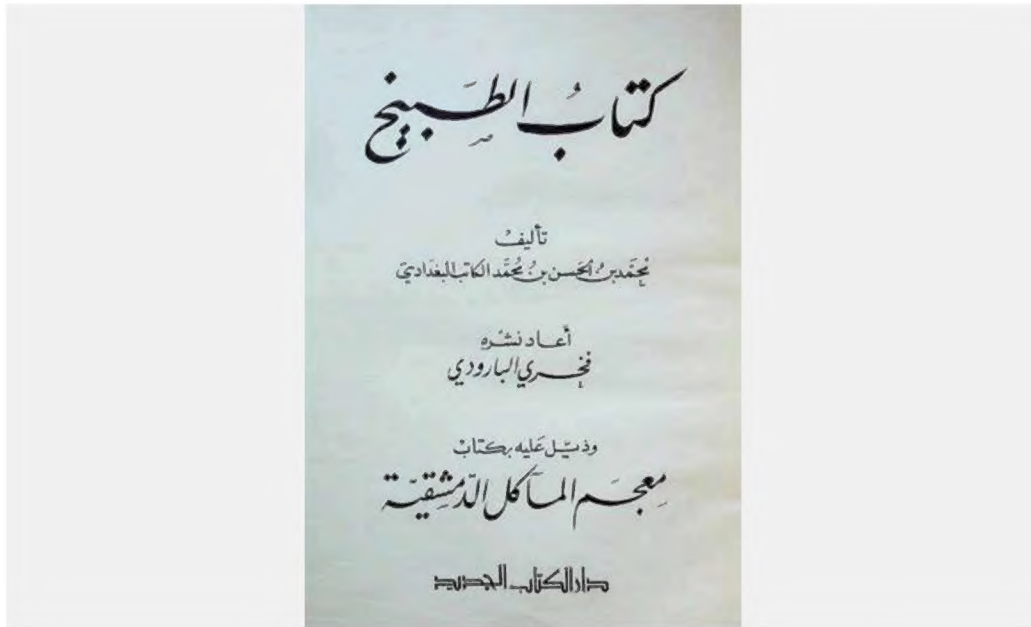 كتابُ الطَبيخ
تأليفُ
مُحمَّد بنُ الحَسن بنُ مُحمَّد الكاتب البغدَاديّ
أعاد نشْره
فخري البارودي
وذيّل عَليه بكتابْ
مِعجَم المآكل الدّمشِقيّة
دار الكتاب الجديد